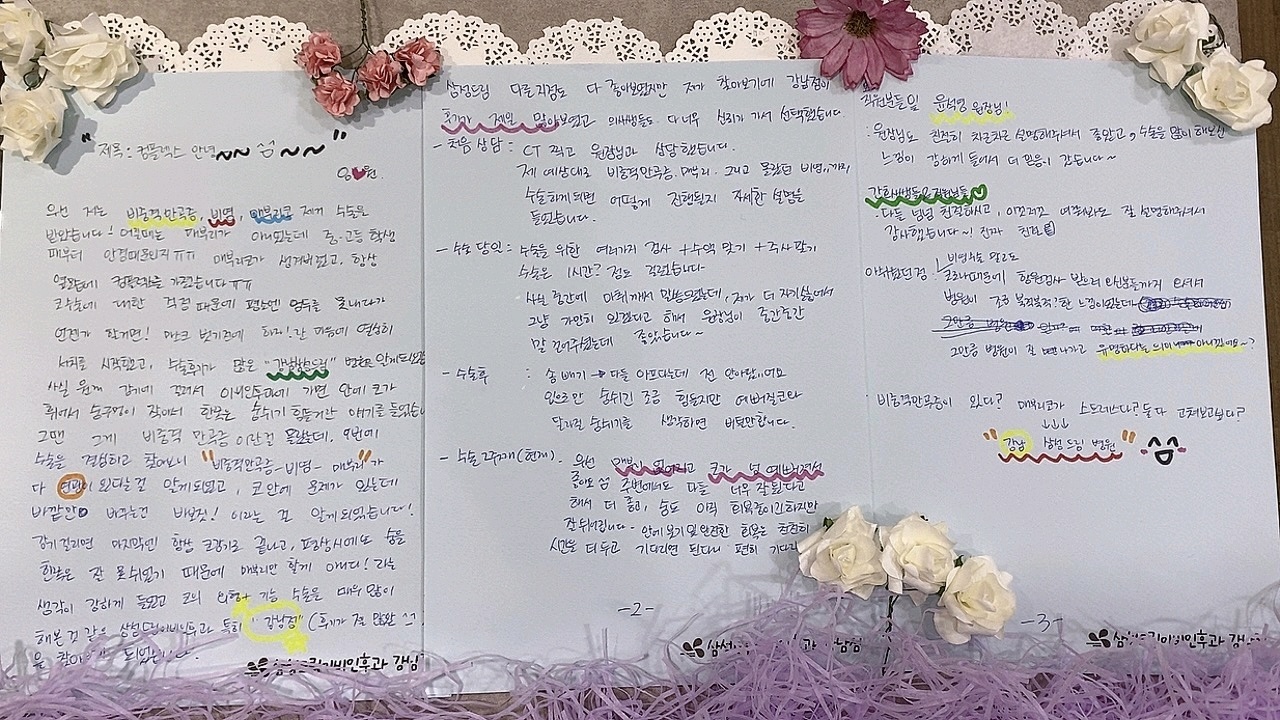 "제목: 컴플렉스 안녕~~ 넘~~"
우선 저는 비중격만곡증, 비염, 매부리코 제거 수술을
받았습니다! 어릴때는 매부리가 아니었는데 중·고등 학생
때부터 안경때문인지ㅠㅠ 매부리코가 생겨버렸고, 항상
옆모습에 컴플렉스를 가졌습니다ㅠㅠ
코수술에 대한 걱정 때문에 평소엔 엄두를 못내다가
언젠가 할거면! 마스크 벗기전에 하자!란 마음에 열심히
서치를 시작했고, 수술후기가 많은 "강남삼성드림" 병원을 알게되었
사실 원래 감기에 걸려서 이비인후과에 가면 안에 코가
휘어서 숨구멍이 작아서 한쪽은 숨쉬기 힘들거란 얘기를 들었습니
그땐 그게 비중격 만곡증 이란걸 몰랐는데, 이번에
수술을 결심하고 찾아보니 "비중격만곡증-비염- 매부리"가
다 연관이 있다는걸 알게되었고, 코안에 문제가 있는데
바깥만 바꾸는건 바보짓! 이라는 걸 알게되었습니다!
감기걸리면 마지막엔 항상 코감기로 끝나고, 평상시에도 숨을
한쪽은 잘 못쉬었기 때문에 매부리만 할게 아니다! 라는
생각이 강하게 들었고 코의 외형+ 기능 수술을 매우 많이
해본 것 같은 삼성드림이비인후과 특히 "강남점" (후기가 젤 많았
을 찾아 되었습니다.
삼성드림이비인후과 강남
삼성드림 다른지점도 다 좋아보였지만 제가 찾아보기에 강남점이
후기가 제일 많아보였고 의사쌤들도 다 너무 신뢰가 가서 선택했습니다.
- 처음 상담 : CT 찍고 원장님과 상담했습니다.
제 예상대로 비중격만곡증, 매부리. 그리고 몰랐던 비염까지
수술하게되면 어떻게 진행될지 자세한 설명을
들었습니다.
- 수술 당일 : 수술을 위한 여러가지 검사 + 수액 맞기 + 주사 맞기
수술은 1시간? 정도 걸렸습니다
사실 중간에 마취 깨서 있었는데, 제가 더 자기싫어서
그냥 가만히 있겠다고 해서 원장님이 중간중간
말 걸어주셨는데 좋았습니다~
- 수술후 : 솜 빼기 → 다들 아프다는데 전 안아팠어요
입으로만 숨쉬긴 조금 힘든지만 예뻐질코와
달라질 숨쉬기를 생각하면 버틸만합니다.
- 수술 2주째(현재). 우선 매부리 없어지고 코가 넘 예뻐져서
좋아요 넘 주변에서도 다들 너무 잘됐다고
해서 더 좋고, 숨도 아직 회복중이긴하지만
잘 쉬어집니다- 안에 붓기 및 완전한 회복은 천천히
시간을 더 두고 기다리면 된다니 편히 기다
-2-
직원분들 및 윤석영 원장님!
: 원장님도 친절히 차근차근 설명해주셔서 좋았고, 수술을 많이 해보신
느낌이 강하게 들어서 더 믿음이 갔습니다~
간호사쌤들&직원님들♡
: 다들 넘넘 친절하시고, 이것저것 여쭤봐도 잘 설명해주셔서
감사했습니다~! 진짜 친절
아쉬웠던 점
비염수술 말고도
코로나때문에 항원검사 받으러 오신분들까지 있어서
병원이 조금 북적북적?한 느낌이었는데
그만큼 병원이 잘 나가고 유명하다는 의미 아니겠어요~?
: 비중격만곡증이 있다? 매부리코가 스트레스다? 둘다 고쳐보고싶다?
↓↓↓
"강남 삼성드림 병원"
-3-